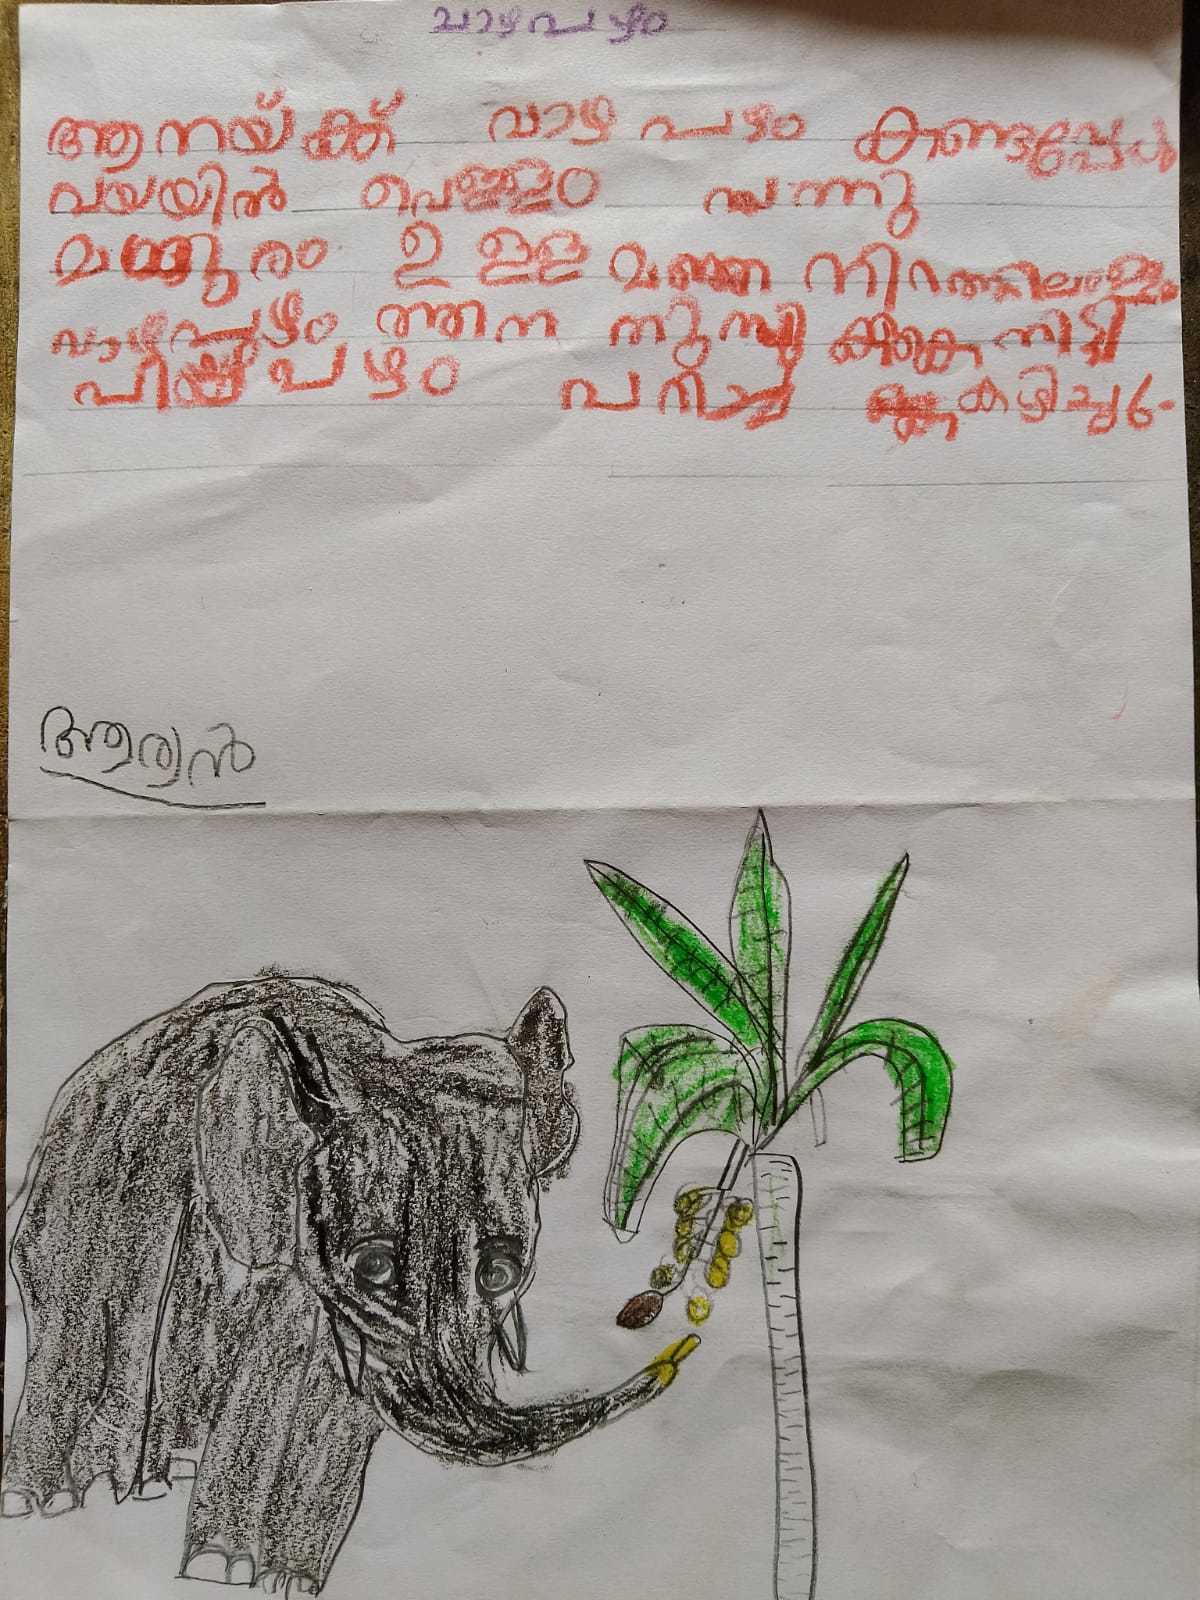 വാഴപഴം
ആനയ്ക്ക് വാഴ പഴം കണ്ടപ്പേൾ
വയയിൽ വെള്ളം വന്നു
മധുരം ഉ ള്ള മഞ്ഞ നിറത്തിലുള്ള
വാഴപ്പഴം ത്തിന നീട്ടി
പഴം പറിച്ച് കഴിച്ചു
ആര്യൻ